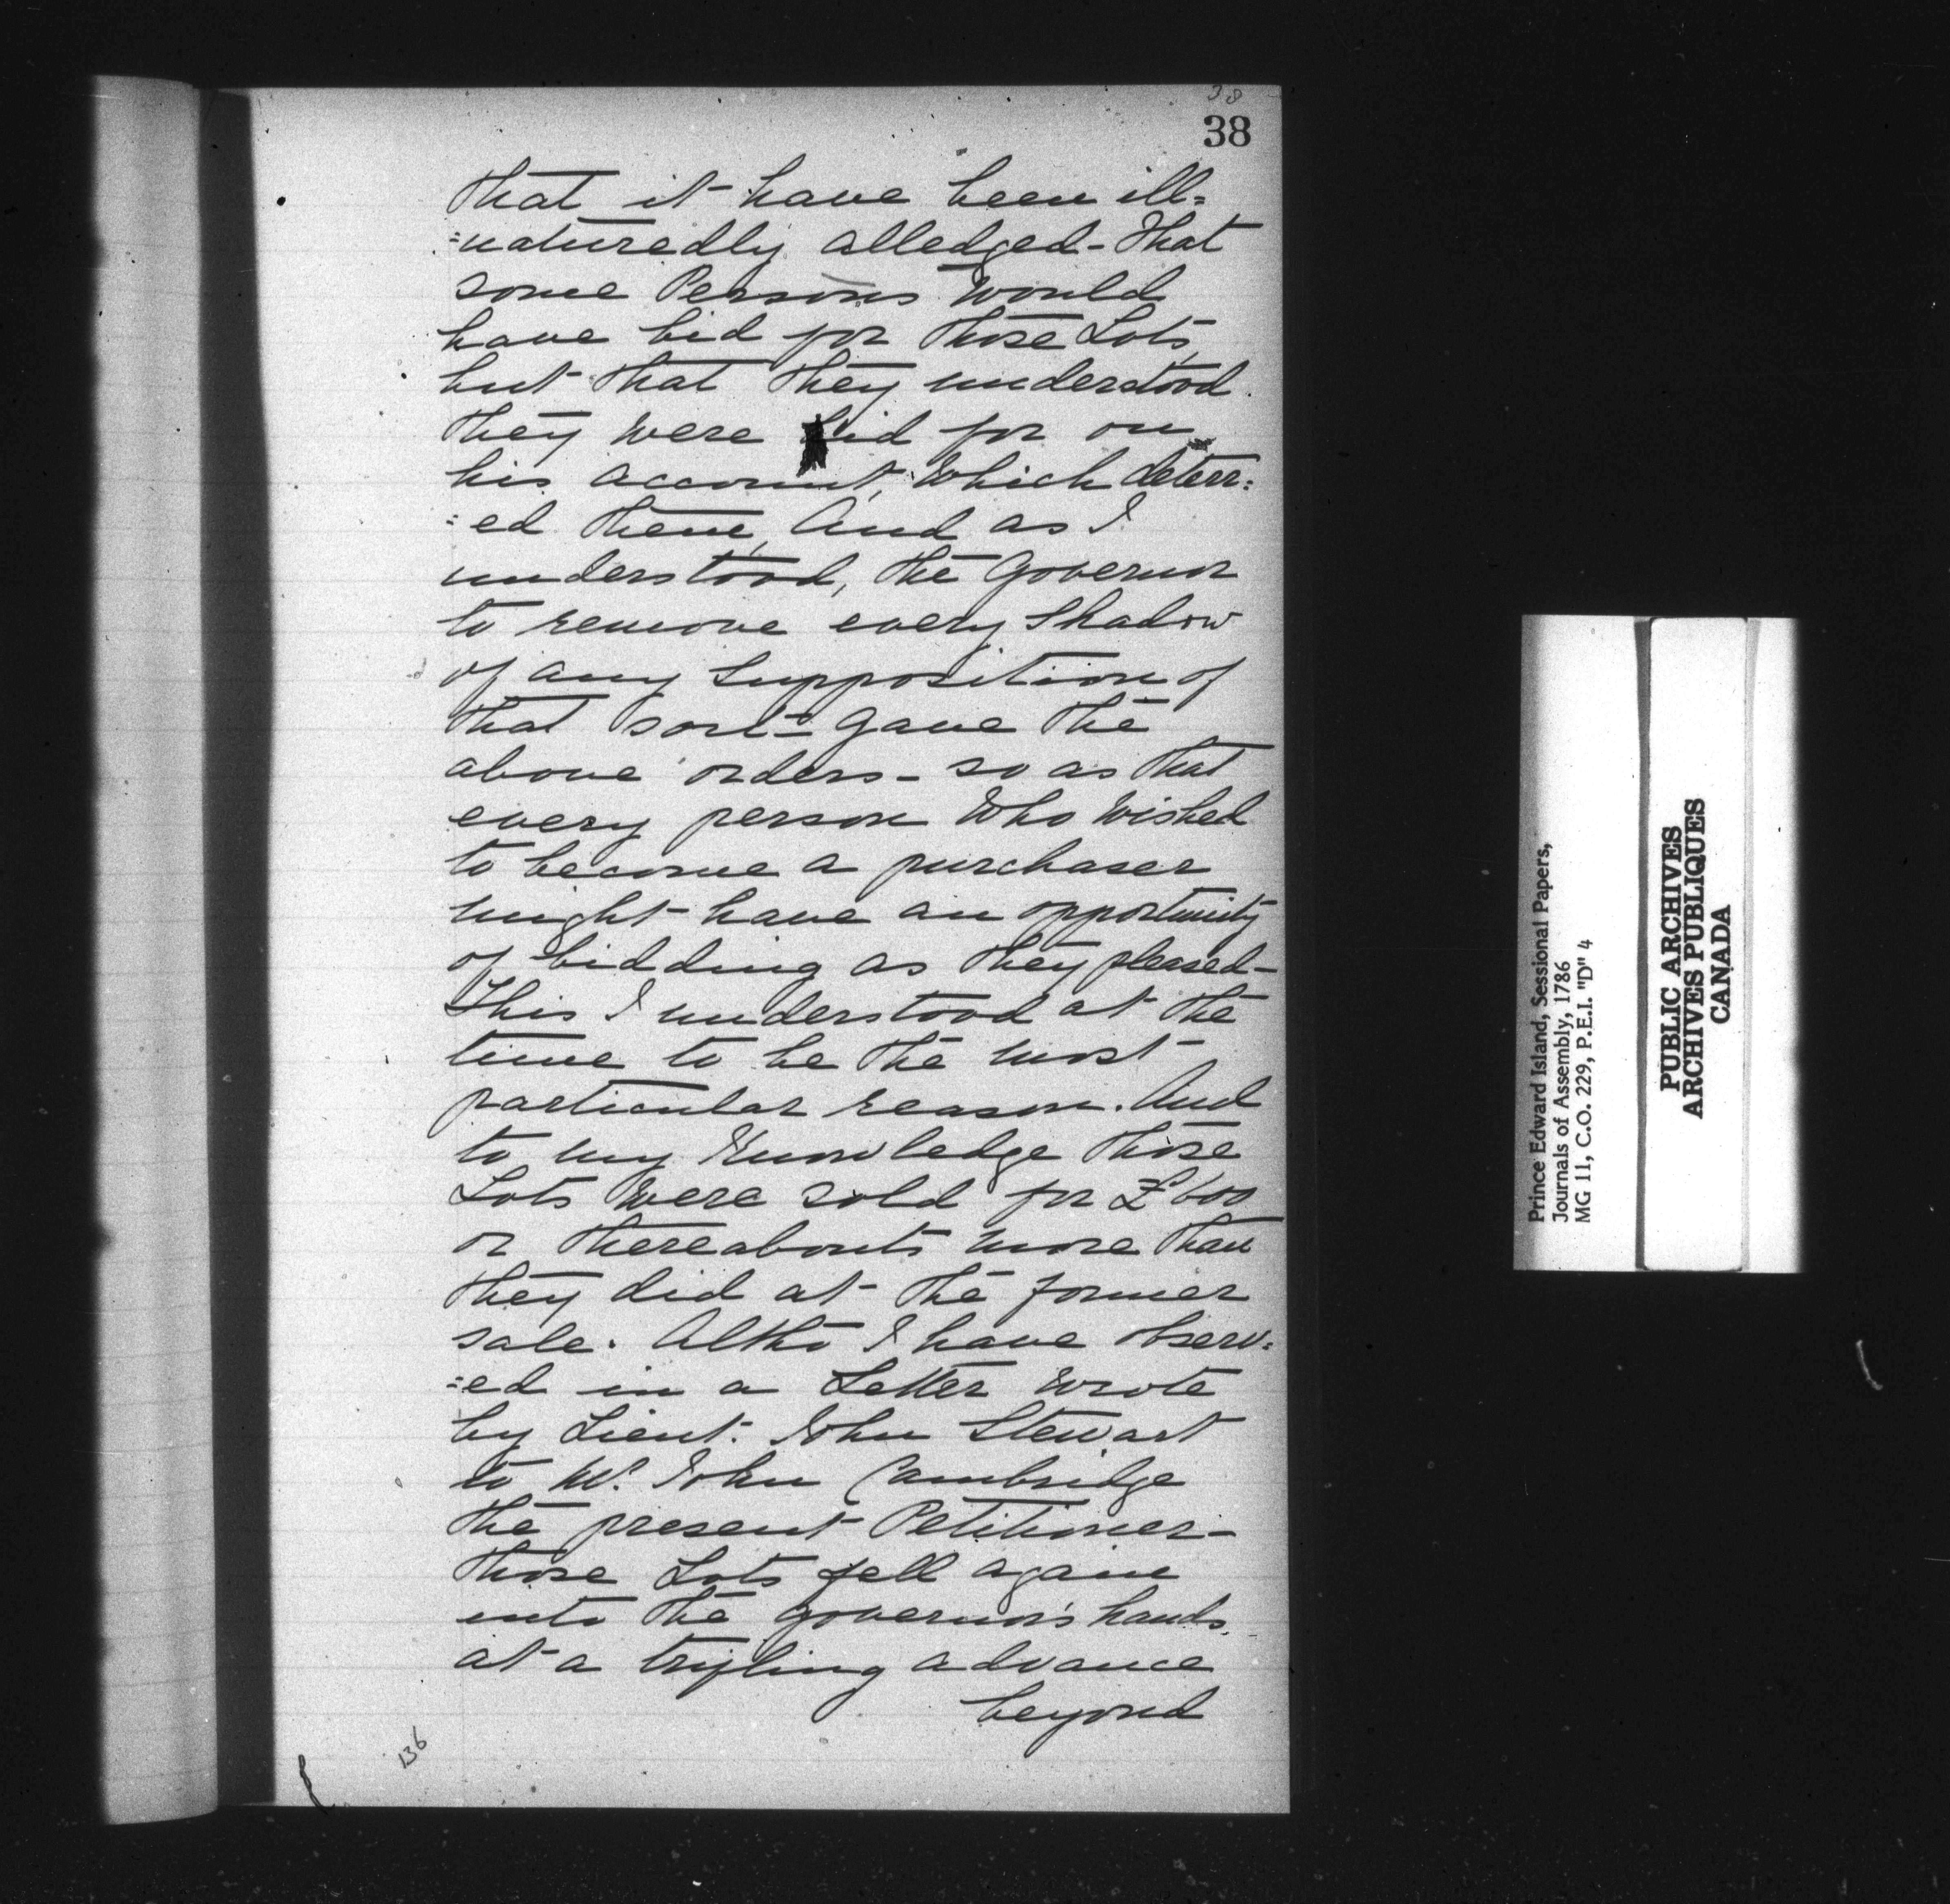 38
38
that it have been ill=
=naturedly alledged - that
some Persons would
have bid for those Lots,
but that they understood
they were bid for on
his account, which deterr=
=ed them, And as I
understood, the Governor
to remove every Shadow
of any Supposition of
that sort - gave the
above orders - so as that
every person who wished
to become a purchaser
might have an opportunity
of bidding as they pleased -
This I understood at the
time to be the most
particular reason. And
to my Knowledge those
Lots were sold for £600
or thereabouts more than
they did at the former
sale. Altho I have observ=
=ed in a Letter wrote
by Lieut. John Stewart
to Mr. John Cambridge
the present Petitioner -
those Lots fell again
into the governor's hands
at a trifling advance
beyond
136
Prince Edward Island, Sessional Papers,
Journals of Assembly, 1786
MG 11, C.O. 229, P.E.I. "D" 4
PUBLIC ARCHIVES
ARCHIVES PUBLIQUES
CANADA